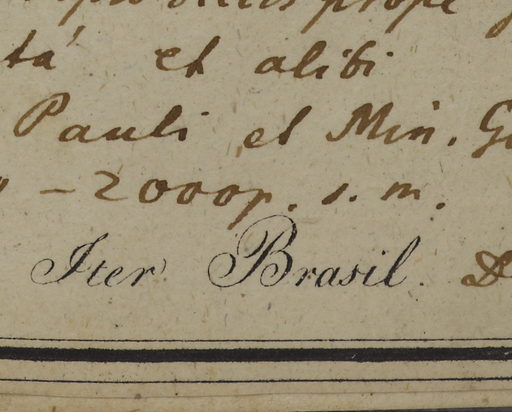 prope
tá et alibi
Pauli et Min. G
– 2000p. s. m.
Iter Brasil.